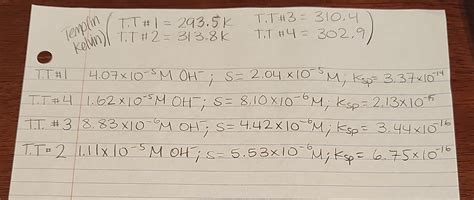 Temp(in Kelvin) ( T.T #1 = 293.5K T.T #3 = 310.4
T.T #2 = 313.8K T.T #4 = 302.9 )
T.T #1 4.07x10⁻⁵ M OH⁻; S = 2.04x10⁻⁵ M; Ksp = 3.37x10⁻¹⁴
T.T #4 1.62x10⁻⁵ M OH⁻; S = 8.10x10⁻⁶ M; Ksp = 2.13x10
T.T. #3 8.83x10⁻⁶ M OH⁻; S = 4.42x10⁻⁶ M; Ksp = 3.44x10⁻¹⁶
T.T #2 1.11x10⁻⁵ M OH⁻; S = 5.53x10⁻⁶ M; Ksp = 6.75x10⁻¹⁶